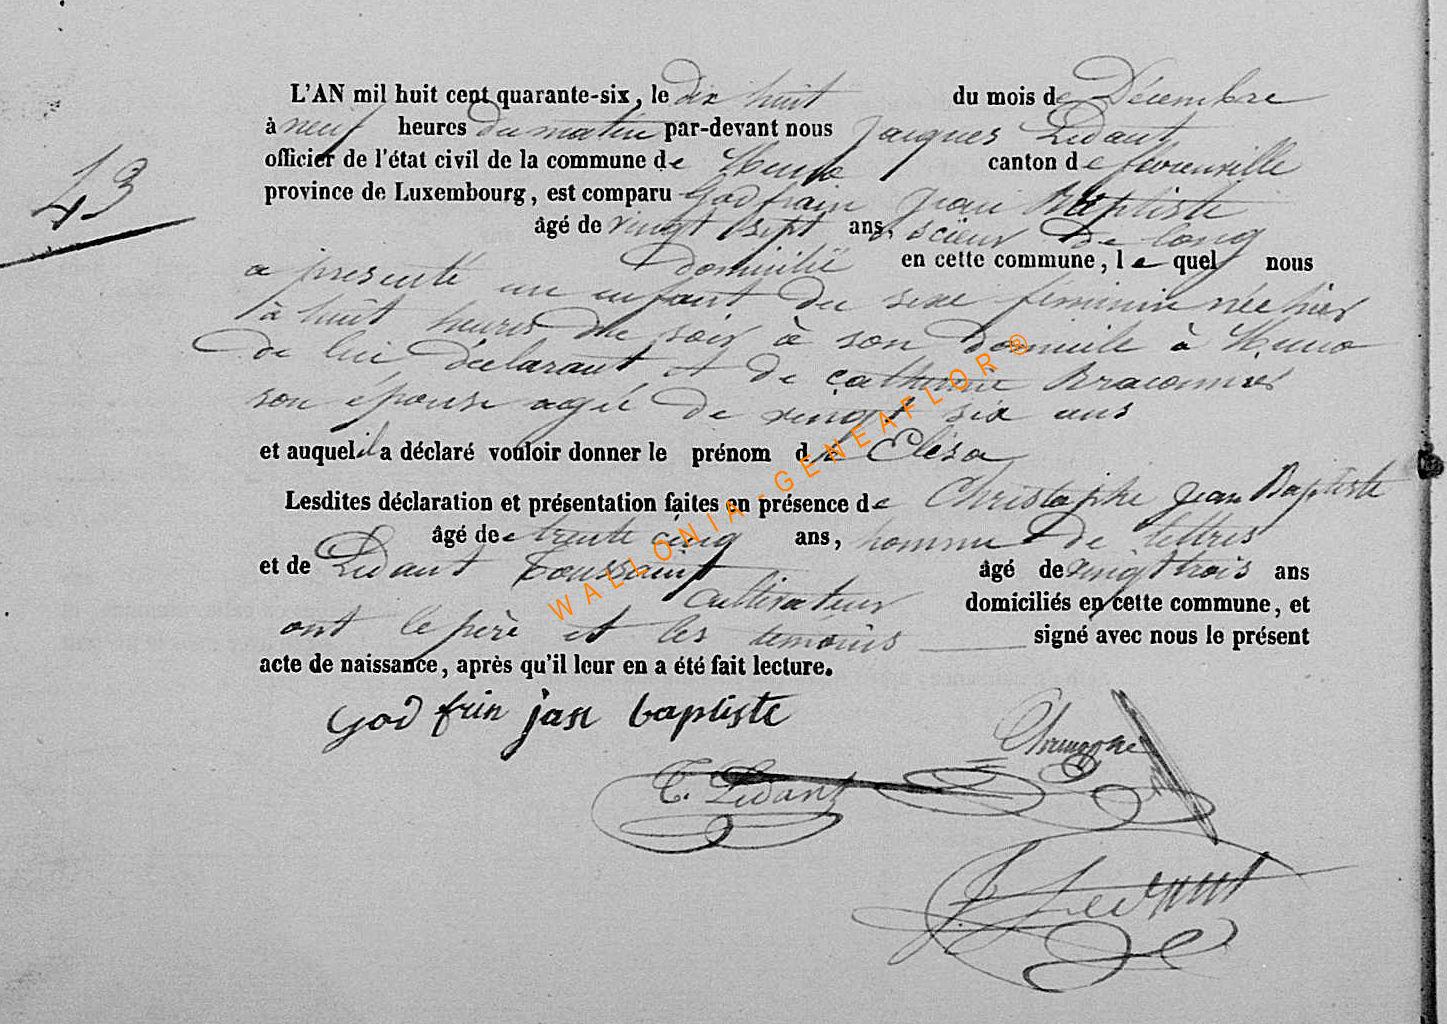 43
L'AN mil huit cent quarante-six, le dix huit du mois de Décembre
à neuf heures du matin par-devant nous Jacques Ledant
officier de l'état civil de la commune de Muno canton de florenville
province de Luxembourg, est comparu Godfrin Jean Baptiste
âgé de vingt sept ans, scieur de long
domicilié en cette commune, lequel nous
a présenté un enfant du sexe féminin née hier
à huit heures du soir à son domicile à Muno
de lui déclarant et de Catherine Braconnier
son épouse agée de vingt six ans
et auquel il a déclaré vouloir donner le prénom de Elisa
Lesdites déclaration et présentation faites en présence de Christophe Jean Baptiste
âgé de trente cinq ans, homme de lettres
et de Ledant Toussaint âgé de vingt trois ans
cultivateur domiciliés en cette commune, et
ont le père et les temoins signé avec nous le présent
acte de naissance, après qu'il leur en a été fait lecture.
god frin jan baptiste
T. Ledant
J. Ledant
WALLONIA-GENEAFLOR®